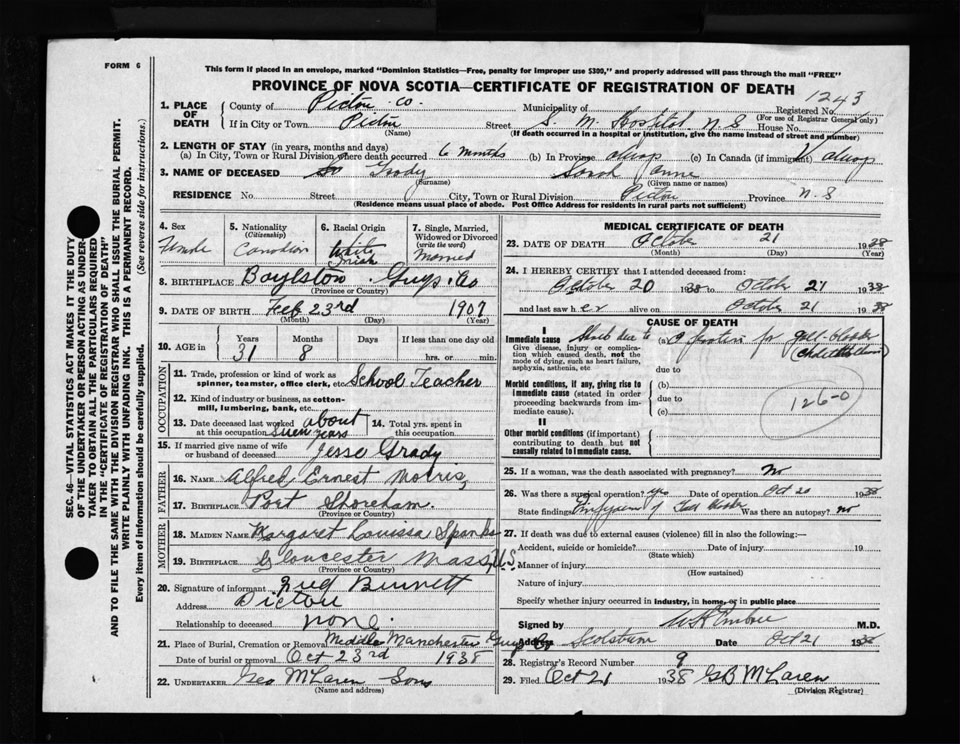 FORM 6
This form if placed in an envelope, marked "Dominion Statistics—Free, penalty for improper use $300," and properly addressed will pass through the mail "FREE"
PROVINCE OF NOVA SCOTIA—CERTIFICATE OF REGISTRATION OF DEATH
1243
1. PLACE OF DEATH
County of Pictou Co. Municipality of Registered No.
(For use of Registrar General only)
If in City or Town Pictou Street S. M. Hospital N S House No.
(Name) (If death occurred in a hospital or institution, give the name instead of street and number)
2. LENGTH OF STAY (in years, months and days)
(a) In City, Town or Rural Division where death occurred 6 months (b) In Province always (c) In Canada (if immigrant) always
3. NAME OF DECEASED Grady Sarah Anne
(Surname) (Given name or names)
RESIDENCE No. Street City, Town or Rural Division Pictou Province N. S
(Residence means usual place of abode. Post Office Address for residents in rural parts not sufficient)
4. Sex Female
5. Nationality (Citizenship) Canadian
6. Racial Origin White Irish
7. Single, Married, Widowed or Divorced (write the word) Married
8. BIRTHPLACE Boylston Guys. Co
(Province or Country)
9. DATE OF BIRTH Feb 23rd 1907
(Month) (Day) (Year)
10. AGE in Years 31 Months 8 Days If less than one day old
hrs. or min.
OCCUPATION
11. Trade, profession or kind of work as spinner, teamster, office clerk, etc. School Teacher
12. Kind of industry or business, as cotton-mill, lumbering, bank, etc.
13. Date deceased last worked at this occupation about years
14. Total yrs. spent in this occupation
15. If married give name of wife or husband of deceased Jesse Grady
FATHER
16. NAME Alfred Ernest Morris
17. BIRTHPLACE Port Shoreham
(Province or Country)
MOTHER
18. MAIDEN NAME Margaret Louissa Spanks
19. BIRTHPLACE Gloucester Mass. U.S.
(Province or Country)
20. Signature of informant Bennett
Address Pictou
Relationship to deceased none.
21. Place of Burial, Cremation or Removal Middle Manchester Guys Co
Date of burial or removal Oct 23rd 1938
22. UNDERTAKER Geo McLaren Sons
(Name and address)
MEDICAL CERTIFICATE OF DEATH
23. DATE OF DEATH October 21 1938
(Month) (Day) (Year)
24. I HEREBY CERTIFY that I attended deceased from:
October 20 1938 to October 21 1938
and last saw her alive on October 21 1938
CAUSE OF DEATH
I
Immediate cause Shock due to (a) operation for gall-bladder
Give disease, injury or complication which caused death, not the mode of dying, such as heart failure, asphyxia, asthenia, etc
due to
Morbid conditions, if any, giving rise to immediate cause (stated in order proceeding backwards from immediate cause).
(b)
due to
(c)
126-0
II
Other morbid conditions (if important) contributing to death but not causally related to immediate cause.
25. If a woman, was the death associated with pregnancy? No
26. Was there a surgical operation? yes Date of operation Oct 20 1938
State findings of Gall Bladder Was there an autopsy? No
27. If death was due to external causes (violence) fill in also the following:—
Accident, suicide or homicide? Date of injury 19
(State which)
Manner of injury
(How sustained)
Nature of injury
Specify whether injury occurred in industry, in home, or in public place
Signed by M.D.
Address Date Oct 21 1938
28. Registrar's Record Number 9
29. Filed Oct 21 1938 GB McLaren
(Division Registrar)
SEC. 46—VITAL STATISTICS ACT MAKES IT THE DUTY
OF THE UNDERTAKER OR PERSON ACTING AS UNDER-
TAKER TO OBTAIN ALL THE PARTICULARS REQUIRED
IN THE "CERTIFICATE OF REGISTRATION OF DEATH"
AND TO FILE THE SAME WITH THE DIVISION REGISTRAR WHO SHALL ISSUE THE BURIAL PERMIT.
WRITE PLAINLY WITH UNFADING INK. THIS IS A PERMANENT RECORD.
Every item of information should be carefully supplied. (See reverse side for instructions.)